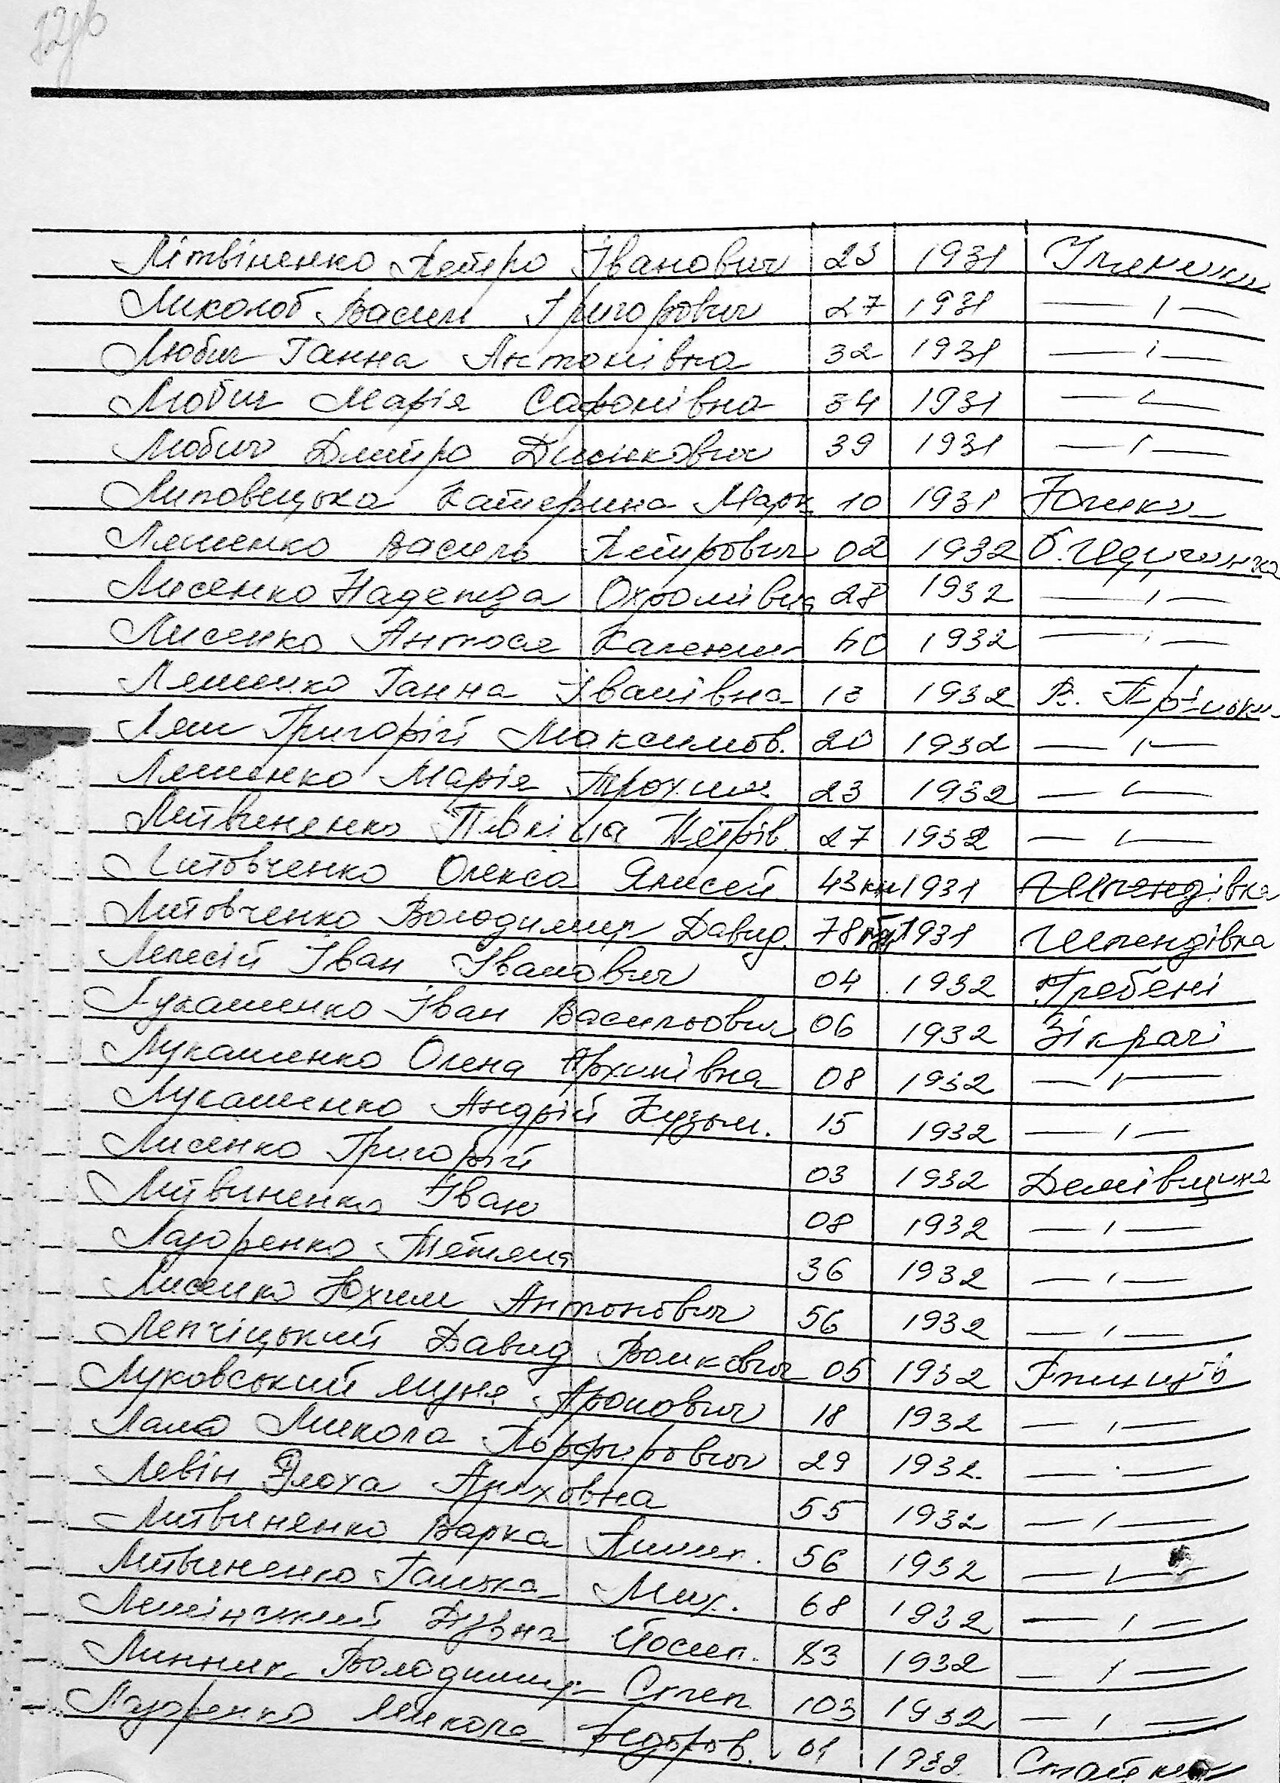 Літвіненко Петро Іванович 23 1931
Лихолоб Василь Григорович 27 1931 — ı —
Любич Ганна Антонівна 32 1931 — ı —
Любич Марія Сафонівна 34 1931 — ı —
Любич Дмитро 39 1931 — ı —
Липовецька Катерина Марк. 10 1931 Юшки
Ляшенко Василь Петрович 02 1932
Лисенко Надежда Охрамівна 28 1932 — ı —
Лисенко Антося 60 1932 — ı —
Ляшенко Ганна Іванівна 13 1932 В. Пріцьки
Ляш Григорій Максимов. 20 1932 — ı —
Ляшенко Марія Трохим. 23 1932 — ı —
Литвиненко Петрів. 27 1932 — ı —
Литовченко Олекса Ялисей 43 1931
Литовченко Володимир Давид. 78 1931 Шпендівка
Іван Іванович 04 1932 Гребені
Лукашенко Іван Васильович 06 1932 Зікрачі
Лукашенко Олена Архипівна 08 1932 — ı —
Лукашенко Андрій Кузьм. 15 1932 — ı —
Лисенко Григорій 03 1932 Демівщина
Литвиненко Іван 08 1932 — ı —
Лазоренко Тетяна 36 1932 — ı —
Лисенко Юхим Антонович 56 1932 — ı —
Давид 05 1932
Луковський Муня Аронович 18 1932 — ı —
Микола Порфирович 29 1932 — ı —
Левін 55 1932 — ı —
Литвиненко Варка 56 1932 — ı —
Литвиненко Мих. 68 1932 — ı —
Йосип. 83 1932 — ı —
Линник Володимир Степ 103 1932 — ı —
Лазоренко Микола Федоров. 01 1932 Стайки